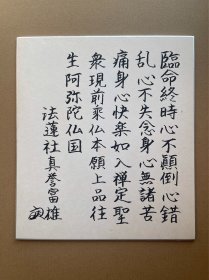 臨命終時心不顛倒心錯
乱心不失念身心無諸苦
痛身心快楽如入禅定聖
衆現前乗仏本願上品往
生阿弥陀仏国
法蓮社真誉富雄